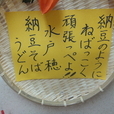 納豆のように
ねばっこく
頑張っぺよ!!
水戸 穂
納豆そば
うどん